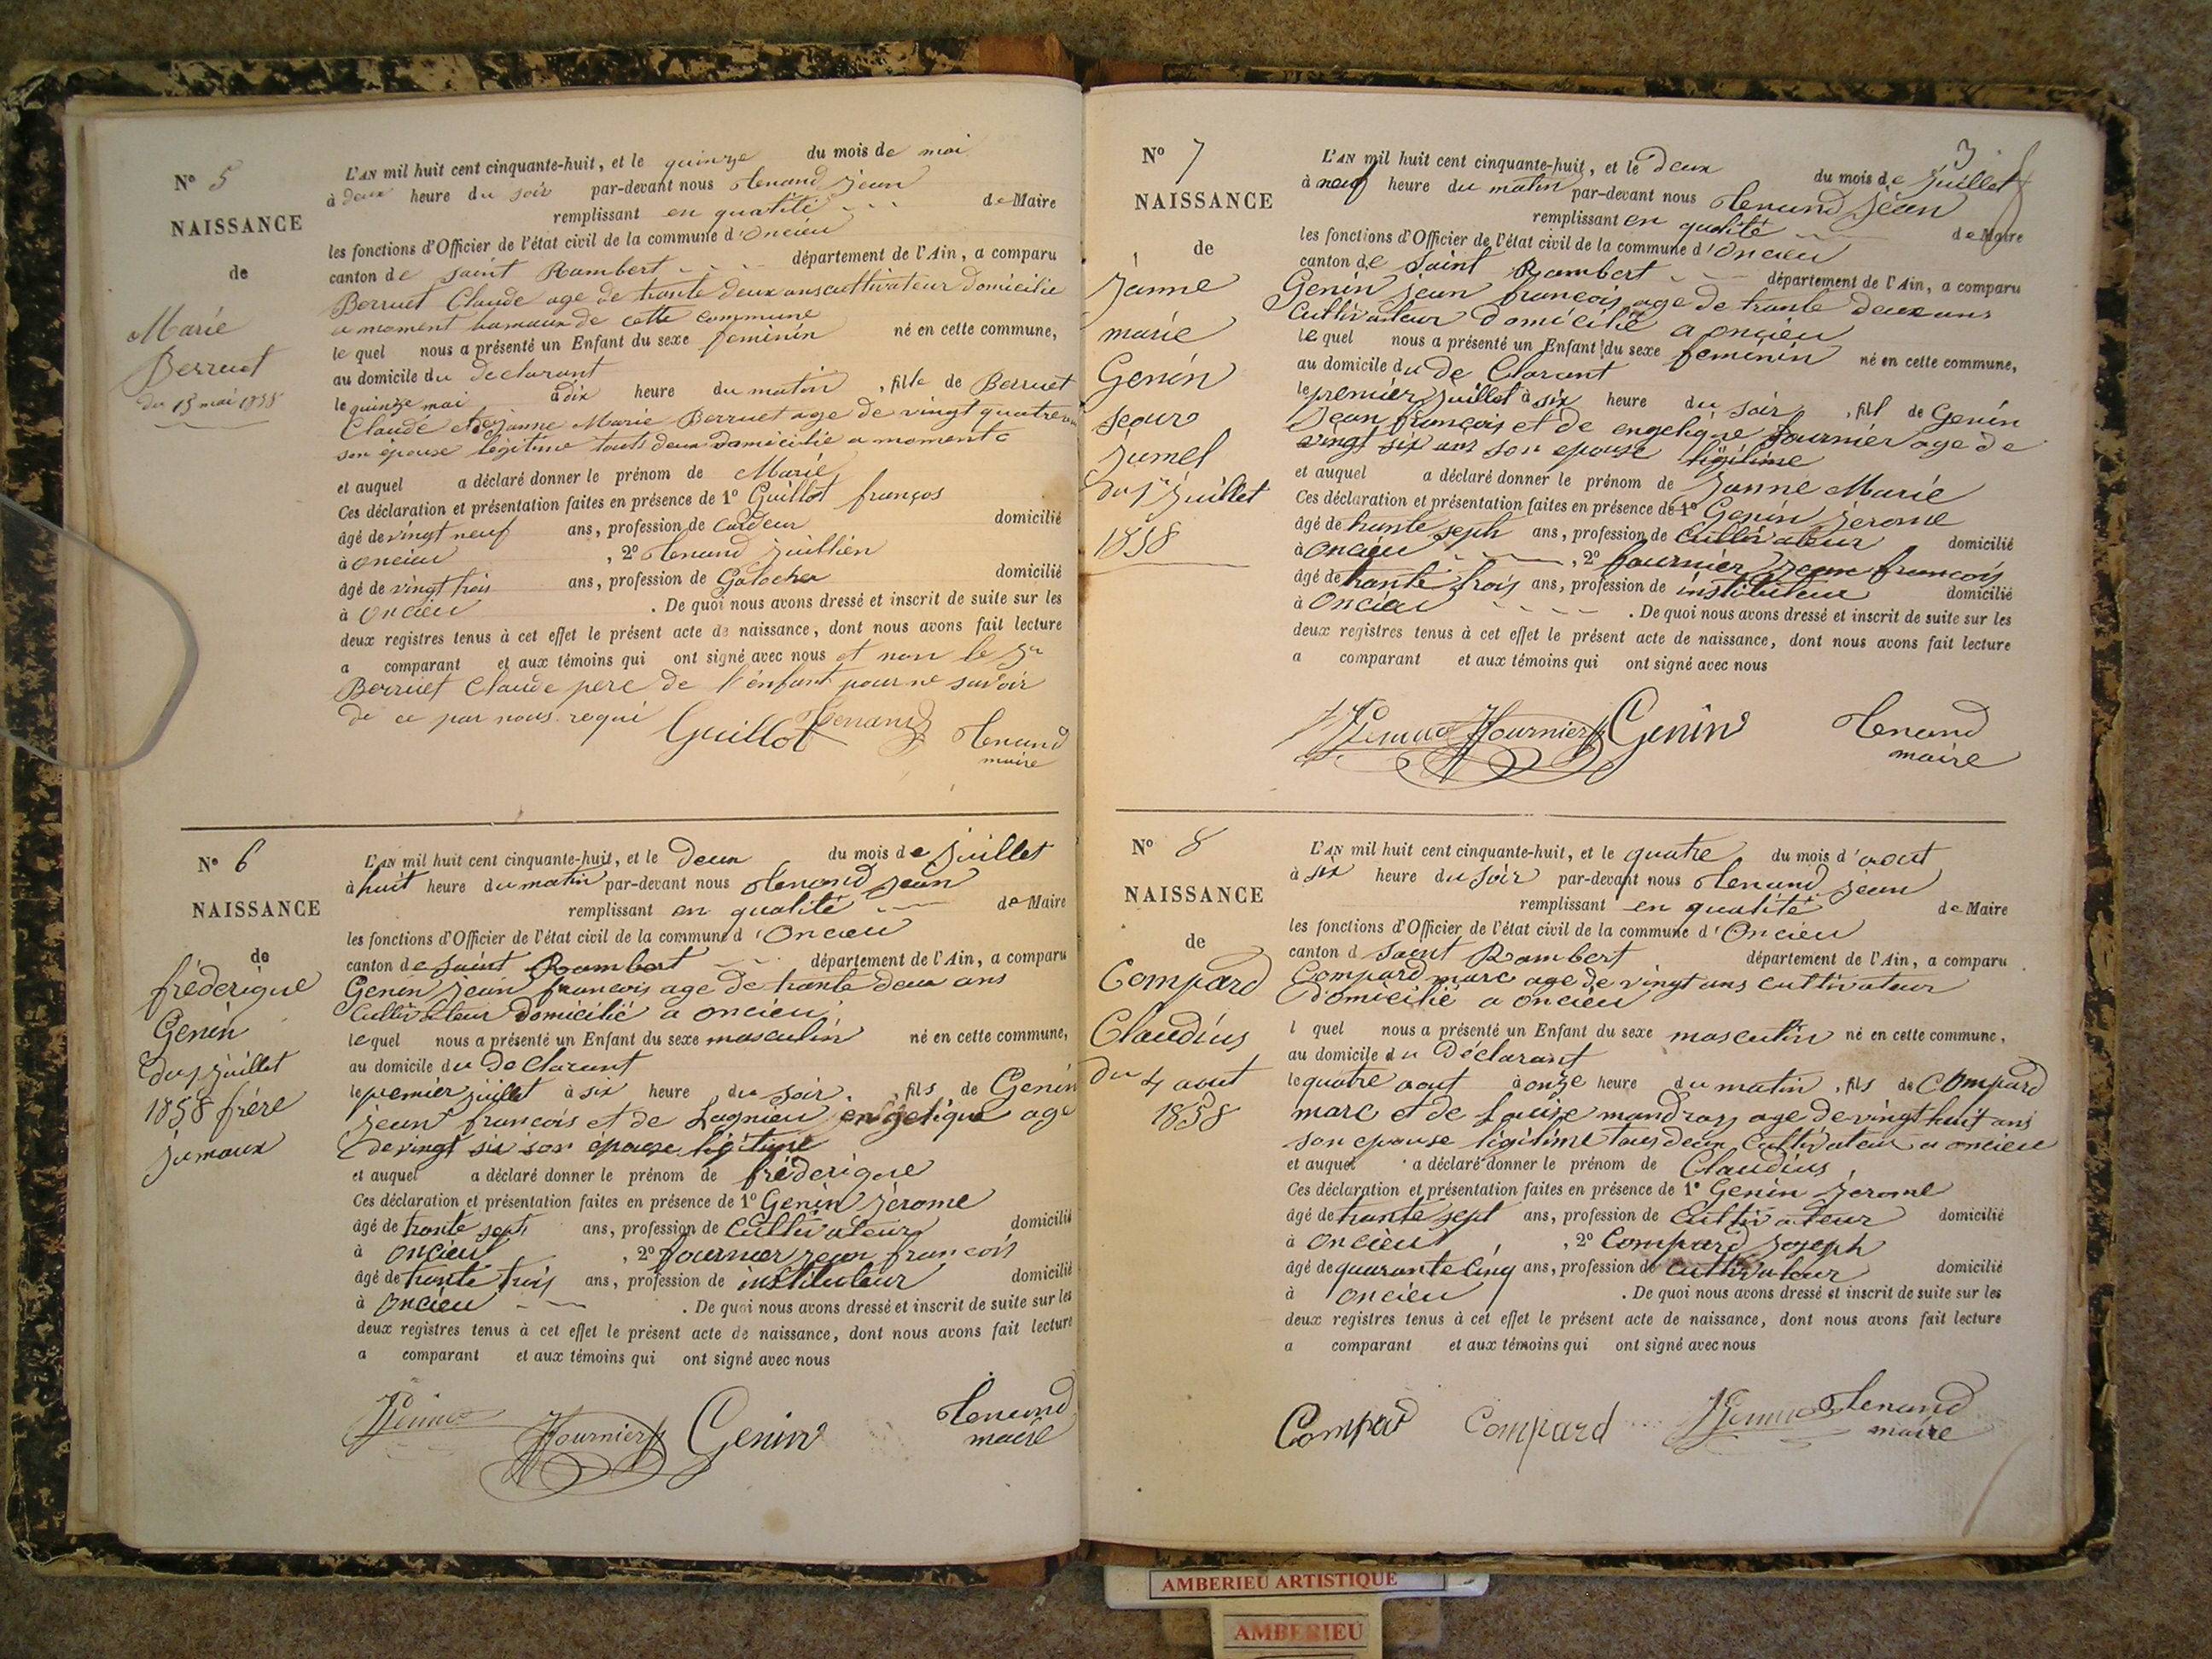 N° 5
NAISSANCE
de
Marie
Berruet
du 15 mai 1858
L'AN mil huit cent cinquante-huit, et le quinze du mois de mai
à deux heure du soir par-devant nous Tenand jean
remplissant en quatité de Maire
les fonctions d'Officier de l'état civil de la commune d'oncieu
canton de saint Rambert département de l'Ain, a comparu
Berruet Claude age de trante deux ans cultivateur domicilie
a moment hamaux de cette commune
le quel nous a présenté un Enfant du sexe feminin né en cette commune,
au domicile du declarant
le quinze mai à dix heure du matin, fille de Berruet
Claude et de janne Marie Berruet age de vingt quatre
son épouse légitime touts deux domicilie a moment
et auquel a déclaré donner le prénom de Marie
Ces déclaration et présentation faites en présence de 1° Guillot franços
âgé de vingt neuf ans, profession de cardeur domicilié
à oncieu, 2° Tenand juillien
âgé de vingt trois ans, profession de Galocher domicilié
à oncieu . De quoi nous avons dressé et inscrit de suite sur les
deux registres tenus à cet effet le présent acte de naissance, dont nous avons fait lecture
a comparant et aux témoins qui ont signé avec nous et non le
Berruet Claude pere de l'énfant pour ne savoir
de ce par nous requi
Guillot Tenand Tenand
maire
N° 6
NAISSANCE
de
fréderique
Genin
du 1 juillet
1858 frére
jumaux
L'AN mil huit cent cinquante-huit, et le deux du mois de juillet
à huit heure du matin par-devant nous Tenand jean
remplissant en qualité de Maire
les fonctions d'Officier de l'état civil de la commune d'Oncieu
canton de saint Rambert département de l'Ain, a comparu
Genin jean francois age de trante deux ans
Cultivateur domicilié a oncieu
lequel nous a présenté un Enfant du sexe masculin né en cette commune,
au domicile du declarant
le premier juillet à six heure du soir, fils de Genin
jean francois et de Lagnieu engelique age
de vingt six son epouze légitime
et auquel a déclaré donner le prénom de fréderique
Ces déclaration et présentation faites en présence de 1° Genin jérome
âgé de trante sept ans, profession de Cultivateur domicilié
à oncieu, 2° fournier jean francois
âgé de trante trois ans, profession de instituteur domicilié
à oncieu . De quoi nous avons dressé et inscrit de suite sur les
deux registres tenus à cet effet le présent acte de naissance, dont nous avons fait lecture
a comparant et aux témoins qui ont signé avec nous
Fournier Genin Tenand
maire
3
N° 7
NAISSANCE
de
Janne
marie
Genin
seours
jumel
du 1er juillet
1858
L'AN mil huit cent cinquante-huit, et le deux du mois de juillet
à neuf heure du matin par-devant nous Tenand jean
remplissant en qualité de Maire
les fonctions d'Officier de l'état civil de la commune d'oncieu
canton de saint Rambert département de l'Ain, a comparu
Genin jean francois age de trante deux ans
Cultivateur domicilié a oncieu
le quel nous a présenté un Enfant du sexe feminin né en cette commune,
au domicile du de Clarant
le premier juillet à six heure du soir, fil de Genin
jean francois et de engelique fournier age de
vingt six ans son epouze légitime
et auquel a déclaré donner le prénom de Janne Marie
Ces déclaration et présentation faites en présence de 1° Genin jerome
âgé de trante seph ans, profession de Cultivateur domicilié
à oncieu, 2° fournier jean francois
âgé de trante trois ans, profession de instituteur domicilié
à Oncieu . De quoi nous avons dressé et inscrit de suite sur les
deux registres tenus à cet effet le présent acte de naissance, dont nous avons fait lecture
a comparant et aux témoins qui ont signé avec nous
Fournier Genin Tenand
maire
N° 8
NAISSANCE
de
Compard
Claudius
du 4 aout
1858
L'AN mil huit cent cinquante-huit, et le quatre du mois d'aout
à six heure du soir par-devant nous Tenand jean
remplissant en qualité de Maire
les fonctions d'Officier de l'état civil de la commune d'Oncieu
canton d saint Rambert département de l'Ain, a comparu
Compard marc age de vingt ans cultivateur
domicilié a oncieu
l quel nous a présenté un Enfant du sexe masculin né en cette commune,
au domicile du Déclarant
le quatre aout à onze heure du matin, fils de Compard
marc et de Louize mandray age de vingt huit ans
son epouse légilime tous deux Cultivateur a oncieu
et auquel a déclaré donner le prénom de Claudius
Ces déclaration et présentation faites en présence de 1° Genin jerome
âgé de trante sept ans, profession de Cultivateur domicilié
à Oncieu, 2° Compard Joseph
âgé de quarante cinq ans, profession de Cultivateur domicilié
à oncieu . De quoi nous avons dressé et inscrit de suite sur les
deux registres tenus à cet effet le présent acte de naissance, dont nous avons fait lecture
a comparant et aux témoins qui ont signé avec nous
Compard Compard Tenand
maire
AMBERIEU ARTISTIQUE
AMBERIEU